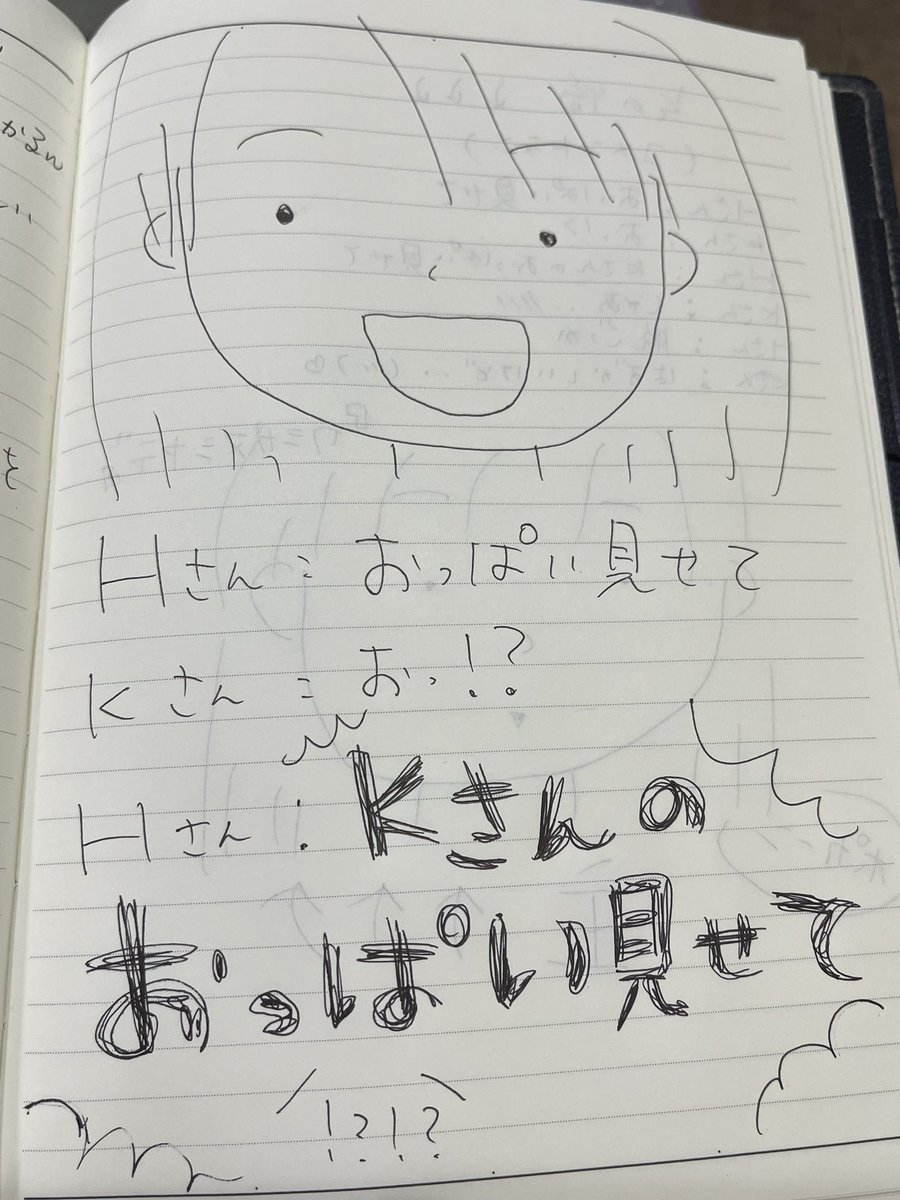 かるん
を
Hさん：おっぱい見せて
Kさん：おっ！？
Hさん：Kさんの
おっぱい見せて
！？！？